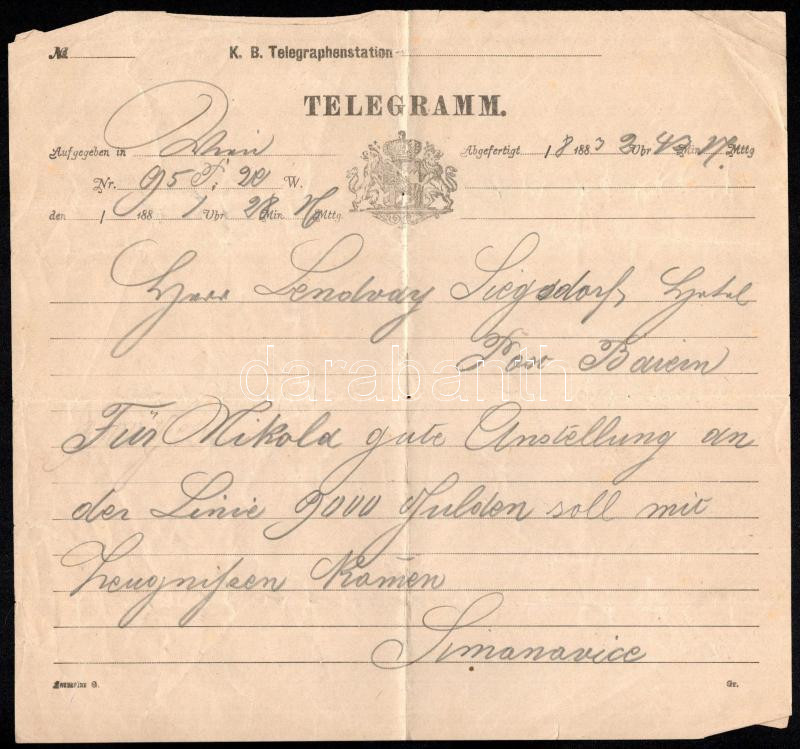 №
K. B. Telegraphenstation
TELEGRAMM.
Aufgegeben in Wien
Abgefertigt 1/8 1883 2 Uhr 43 Min. N. Mttg
Nr. 95 T. 20 W.
den 1/ 188 1 Uhr 28 Min. N Mttg.
Herr Lendvay Siegsdorf Hotel
Post Baiern
Für Nikola gute Anstellung an
der Linie 9000 Gulden soll mit
Zeugnißen Kom̄en
Simanavice
darabanth
Gr.